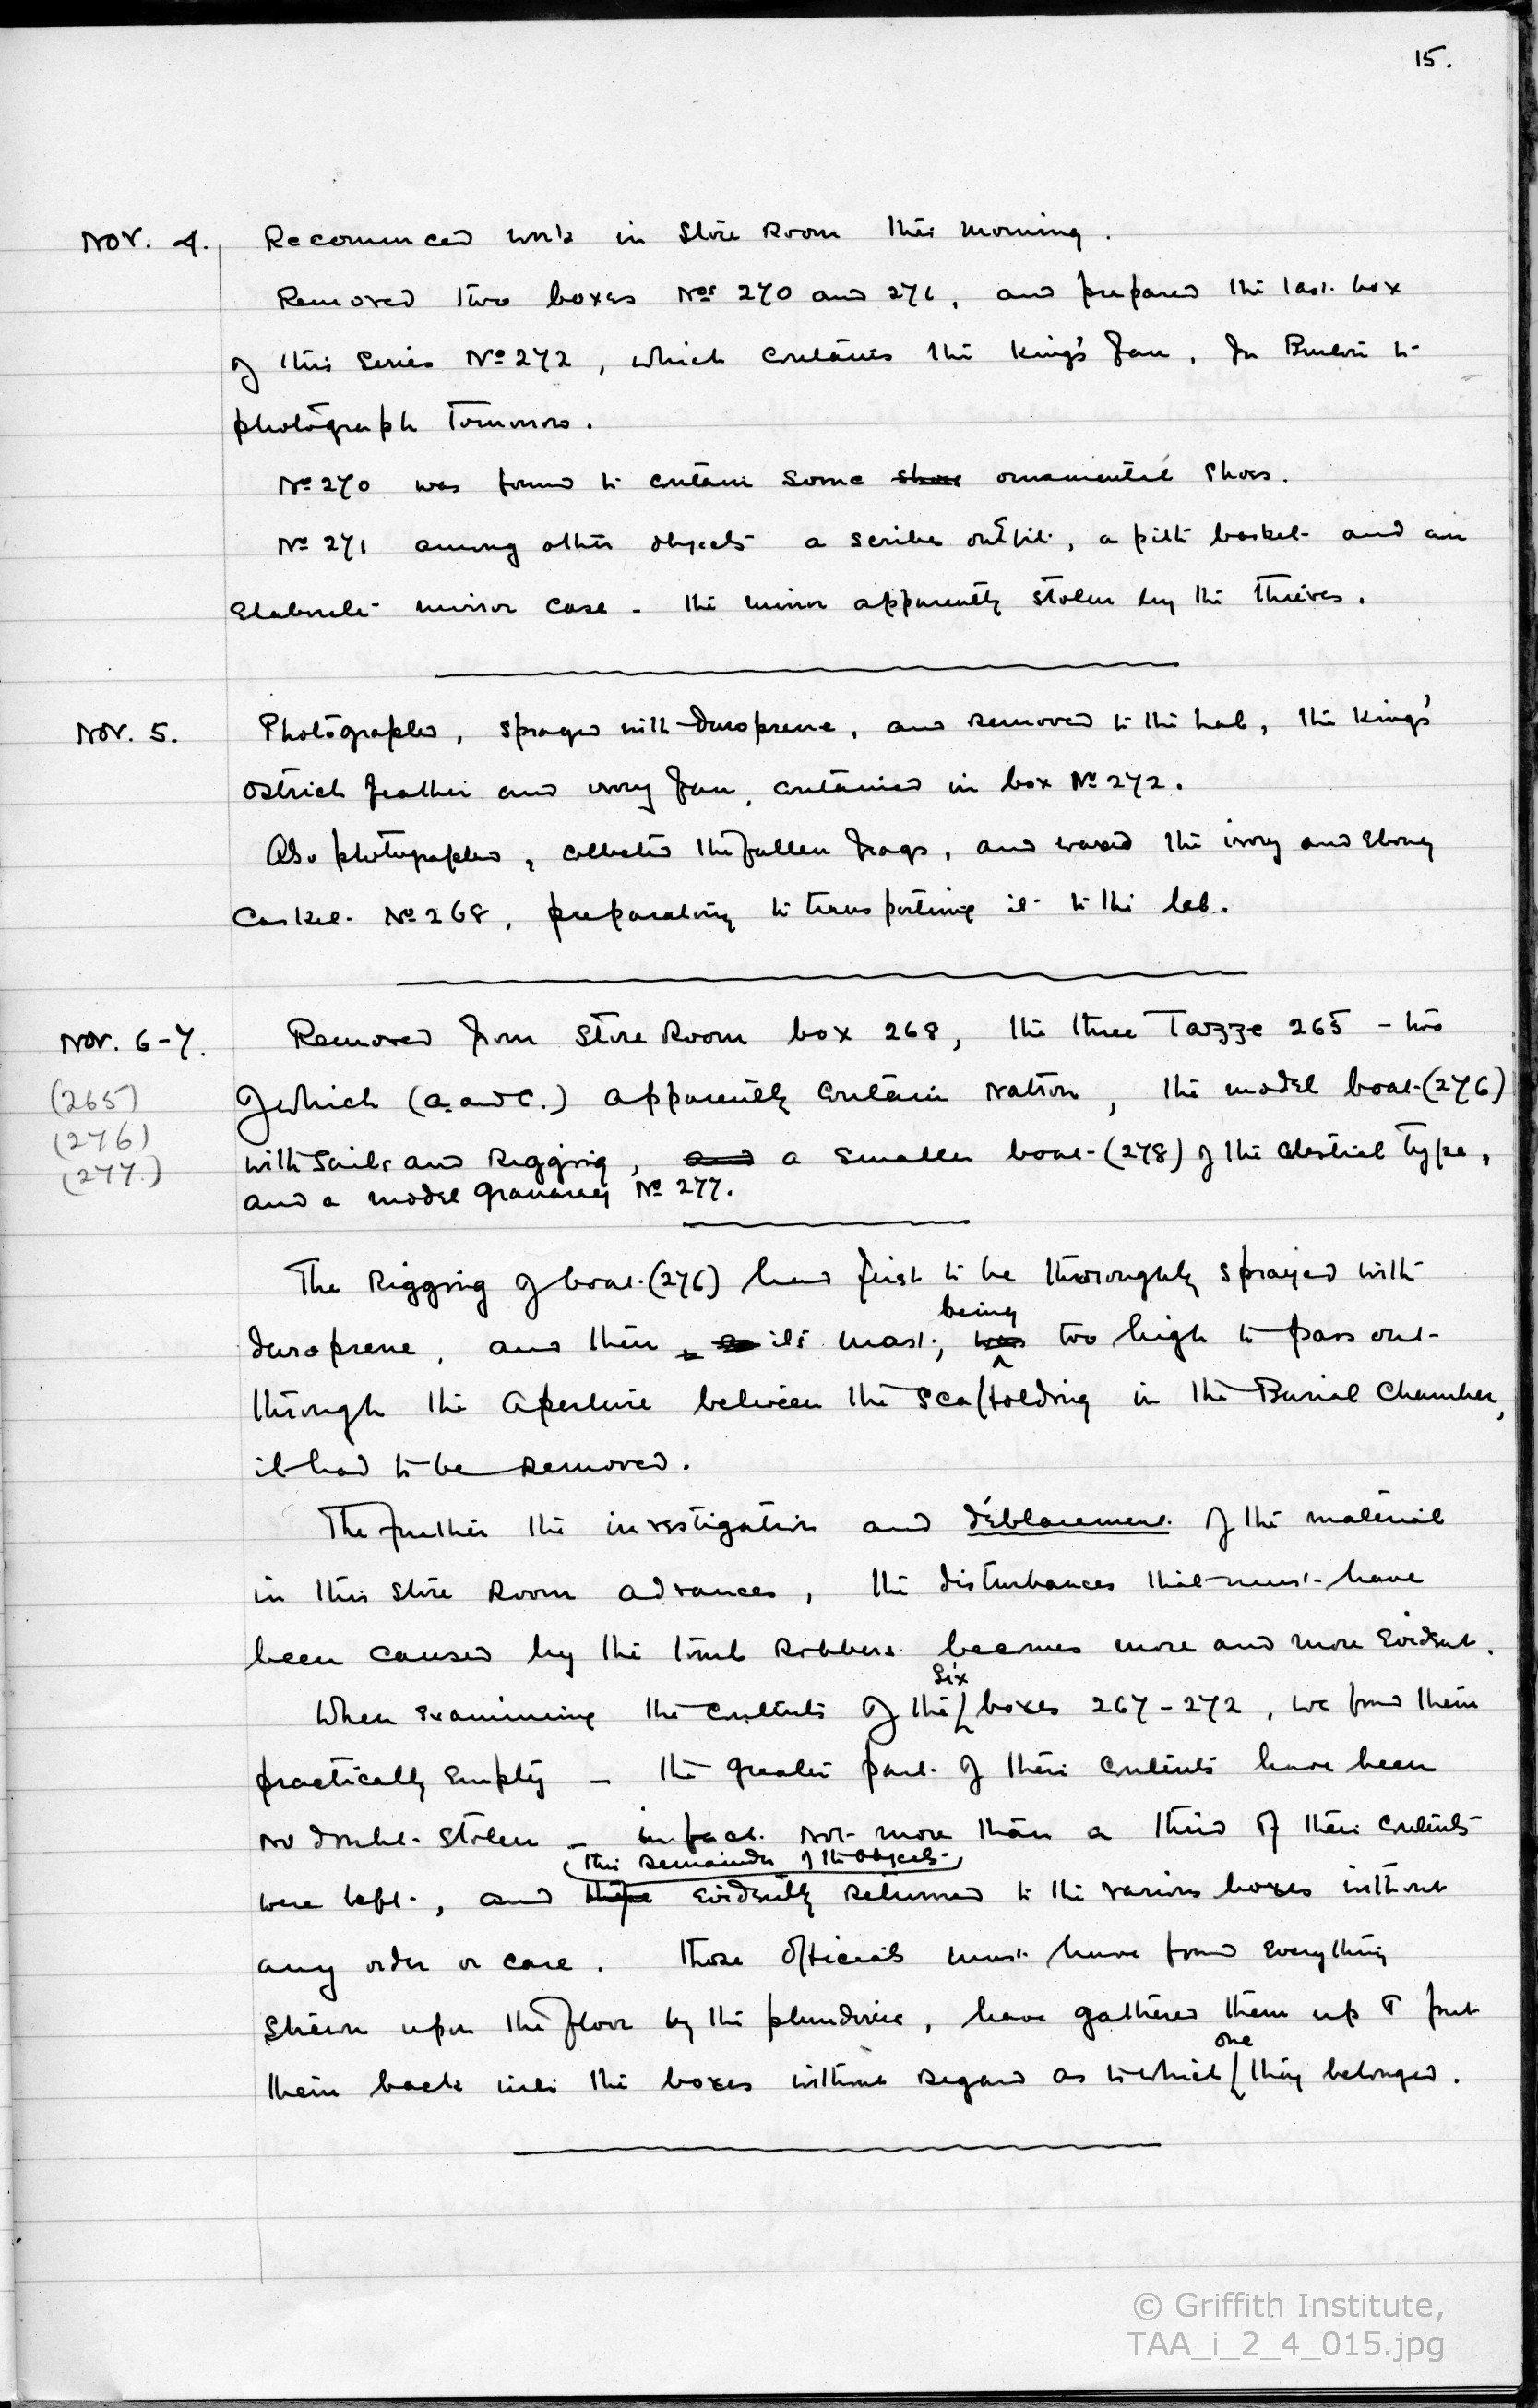 15.
Nov. 4. Recommenced work in Store Room this morning.
Removed two boxes Nos 270 and 271, and prepared the last box
of this series No 272, which contains the King's fan, for Burton to
photograph tomorrow.
No 270 was found to contain some shoes ornamental shoes.
No 271 among other objects a scribes outfit, a pith basket and an
elaborate mirror case - the mirror apparently stolen by the thieves.
Nov. 5. Photographed, sprayed with duroprene, and removed to the Lab, the King's
ostrich feather and ivory fan, contained in box No 272.
Also photographed, collected the fallen frags, and waxed the ivory and ebony
casket No 268, preparatory to transporting it to the lab.
Nov. 6-7. Removed from Store Room box 268, the three Tazze 265 - two
(265)
(276)
(277.)
of which (a. and c.) apparently contain natron, the model boat (276)
with sails and rigging, and a smaller boat (278) of the celestial type,
and a model granary No 277.
The rigging of boat (276) had first to be thoroughly sprayed with
duroprene, and then, as its mast, was being too high to pass out
through the aperture between the scaffolding in the Burial Chamber,
it had to be removed.
The further the investigation and déblaiement of the material
in this Store Room advances, the disturbances that must have
been caused by the tomb robbers becomes more and more evident.
When examining the contents of the six boxes 267-272, we found them
practically empty - the greater part of their contents have been
no doubt stolen - in fact not more than a third of their contents
were left, and this remainder of the objects evidently returned to the various boxes without
any order or care. Those officials must have found everything
strewn upon the floor by the plunderers, have gathered them up & put
them back into the boxes without regard as to which one they belonged.
© Griffith Institute,
TAA_i_2_4_015.jpg